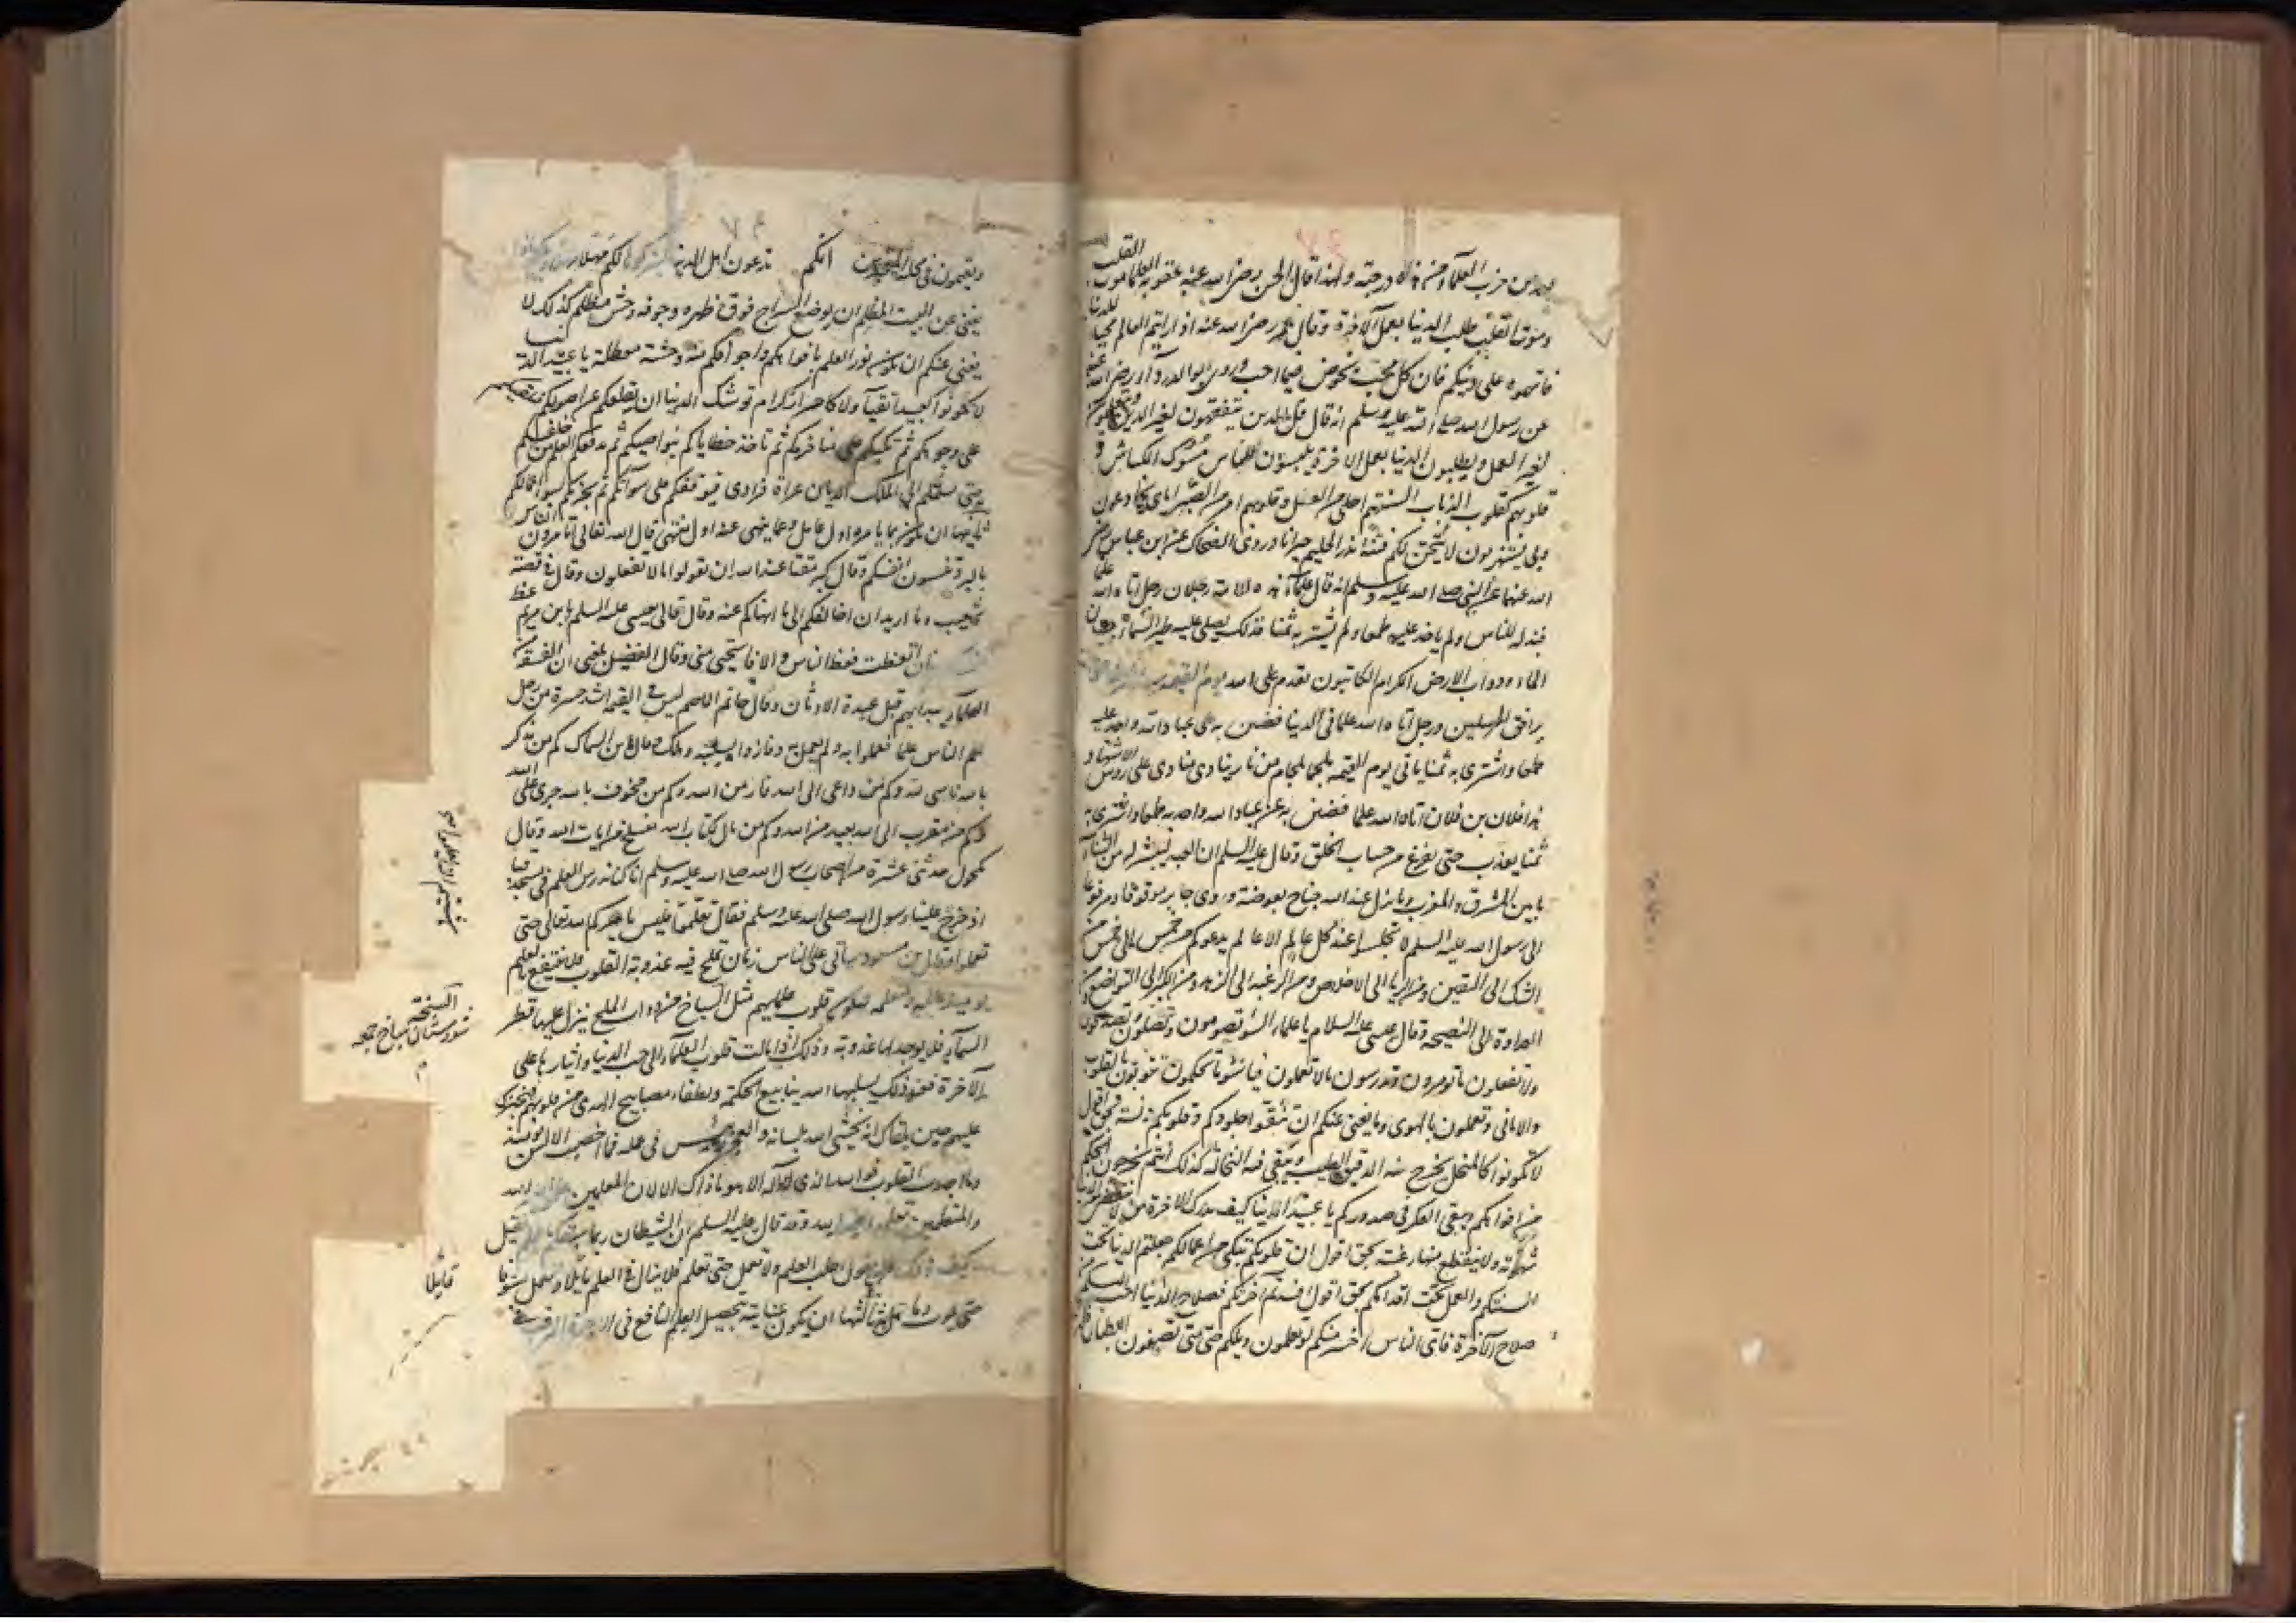 من حزب العلماء درجته ولهذا قال الحسن رضي الله عنه عقوبة العلماء موت القلب
وموت القلب طلب الدنيا بعمل الآخرة وقال عمر رضي الله عنه اذا رايتم العالم محبا للدنيا
فاتهموه على دينكم فان كل محب يخوض فيما احب وروى ابو الدرداء رضي الله عنه
عن رسول الله صلى الله عليه وسلم انه قال قل للذين يتفقهون لغير الدين ويتعلمون
لغير العمل ويطلبون الدنيا بعمل الاخرة يلبسون للناس مسوك الكباش و
قلوبهم كقلوب الذياب السنتهم احلى من العسل وقلوبهم امر من الصبر اياى يخادعون
وبي يستهزيون لاتيحن لكم فتنة تذر الحليم حيرانا وروى الضحاك عن ابن عباس رضي
الله عنهما عن النبي صلى الله عليه وسلم انه قال علماء هذه الامة رجلان رجل اتاه الله علما
فبذله للناس ولم ياخذ عليه طمعا ولم يشتر به ثمنا فذلك يصلي عليه طير السماء وحيتان
الماء ودواب الارض والكرام الكاتبون تقدم على الله يوم القيمة
يرافق المرسلين ورجل اتاه الله علما في الدنيا فضن به على عباد الله واخذ عليه
طمعا واشترى به ثمنا ياتي يوم القيمة ملجما بلجام من نار ينادى مناد على رؤس الاشهاد
هذا فلان بن فلان اتاه الله علما فضن به عن عباد الله واخذ به طمعا واشترى به
ثمنا يعذب حتى يفرغ من حساب الخلق وقال عليه السلم ان العبد لينشر له من الثناء
ما بين المشرق والمغرب وما يزن عند الله جناح بعوضة وروى جابر موقوفا ومرفوعا
الى رسول الله عليه السلم لا تجلسوا عند كل عالم الا عالم يدعوكم من خمس الى خمس من
الشك الى اليقين ومن الريا الى الاخلاص ومن الرغبة الى الزهد ومن الكبر الى التواضع ومن
العداوة الى النصيحة وقال عيسى عليه السلام يا علماء السوء تصومون وتصلون وتصدقون
ولا تفعلون ما تومرون وتدرسون ما لا تعملون فياسوء ما تحكمون تتوبون بالقول
والاماني وتعملون بالهوى وما يغني عنكم ان تنقوا جلودكم وقلوبكم دنسة بحق اقول
لا تكونوا كالمنخل يخرج منه الدقيق الطيب ويبقى فيه النخالة كذلك انتم تخرجون الحكم
من افواهكم ويبقى الغل في صدوركم يا عبيد الدنيا كيف يدرك الاخرة من لا تنقضي من الدنيا
شهوته ولا ينقطع منها رغبته بحق اقول ان قلوبكم تبكي من اعمالكم جعلتم الدنيا تحت
السنتكم والعمل تحت اقدامكم بحق اقول افسدتم آخرتكم فصلاح الدنيا احب اليكم من
صلاح الآخرة فاى الناس اخسر منكم لو تعلمون ويلكم حتى متى تصفون الطريق
وتقيمون في محلة المتحيرين انكم تدعون اهل الدنيا ليتركوها لكم مهلا
يغني عن البيت المظلم ان يوضع السراج فوق ظهره وجوفه وحش مظلم كذلك لا
يغني عنكم ان يكون نور العلم بافواهكم واجوافكم منه وحشة معطلة يا عبيد الدنيا
لا تكونوا كعبيد اتقياء ولا كاحرار كرام توشك الدنيا ان تقلعكم عن اصولكم
على وجوهكم ثم تكبكم على مناخركم ثم تاخذ خطاياكم بنواصيكم ثم يدفعكم العلم من خلفكم
حتى يسلمكم الى الملك الديان عراة فرادى فيوقفكم على سوآتكم ثم يجزيكم بسوء اعمالكم
ثانيها ان يكون بما يامر به اول عامل وعما ينهى عنه اول منتهى قال الله تعالى اتامرون الناس
بالبر وتنسون انفسكم وقال كبر مقتا عند الله ان تقولوا ما لا تفعلون وقال في قصة
شعيب وما اريد ان اخالفكم الى ما انهاكم عنه وقال تعالى لعيسى عليه السلم يا ابن مريم عظ
فان اتعظت فعظ الناس والا فاستحيي مني وقال الفضيل بلغني ان الفسقة
العلماء يبدا بهم قبل عبدة الاوثان وقال حاتم الاصم ليس في القيمة اشد حسرة من رجل
علم الناس علما فعملوا به ولم يعمل به ففازوا بسببه وهلك وقال ابن السماك كم من مذكر
بالله ناسى لله وكم من داعى الى الله فار من الله وكم من مخوف بالله جرى على الله
وكم من مقرب الى الله بعيد من الله وكم من تال كتاب الله منسلخ من ايات الله وقال
مكحول حدثني عشرة من اصحاب رسول الله صلى الله عليه وسلم انا كنا ندرس العلم في مسجد قبا
اذ خرج علينا رسول الله صلى الله عليه وسلم فقال تعلموا فليس ياجركم الله تعالى حتى
تعملوا وقال ابن مسعود سياتي على الناس زمان تملح فيه عذوبة القلوب فلا ينتفع بالعلم
يوميذ عالمه ومتعلمه فيكون قلوب علمايهم مثل السباخ من ذوات الملح ينزل عليها قطر
السماء فلا يوجد لها عذوبة وذلك اذا مالت قلوب العلماء الى حب الدنيا وايثارها على
الآخرة فعند ذلك يسلبها الله ينابيع الحكمة ويطفاء مصابيح الهدى من قلوبهم فيخبرك
عليهم حين تلقاك انه يخشى الله بلسانه والفجور في عمله فما اخصب الالسن يوميذ
وما اجدب القلوب فوالله الذي لا اله الا هو ما ذاك الا لان المعلمين علموا لغير الله
والمتعلمين تعلموا لغير الله وقد قال عليه السلم ان الشيطان ربما يسبقكم بالعلم قيل
كيف ذلك قال يقول اطلب العلم ولا تعمل حتى تعلم فلا يزال في العلم قايلا وللعمل مسوفا
حتى يموت وما عمل ثالثها ان يكون عنايته بتحصيل العلم النافع في الاخرة المرغب في
السبخة
شورستان سباخ جمع
قايلا